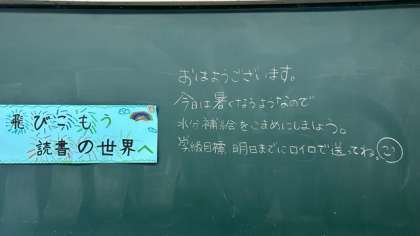 おはようございます。
今日は暑くなるようなので
水分補給をこまめにしましょう。
学級目標 明日までにロイロで送ってね。
飛びこもう
読書の世界へ